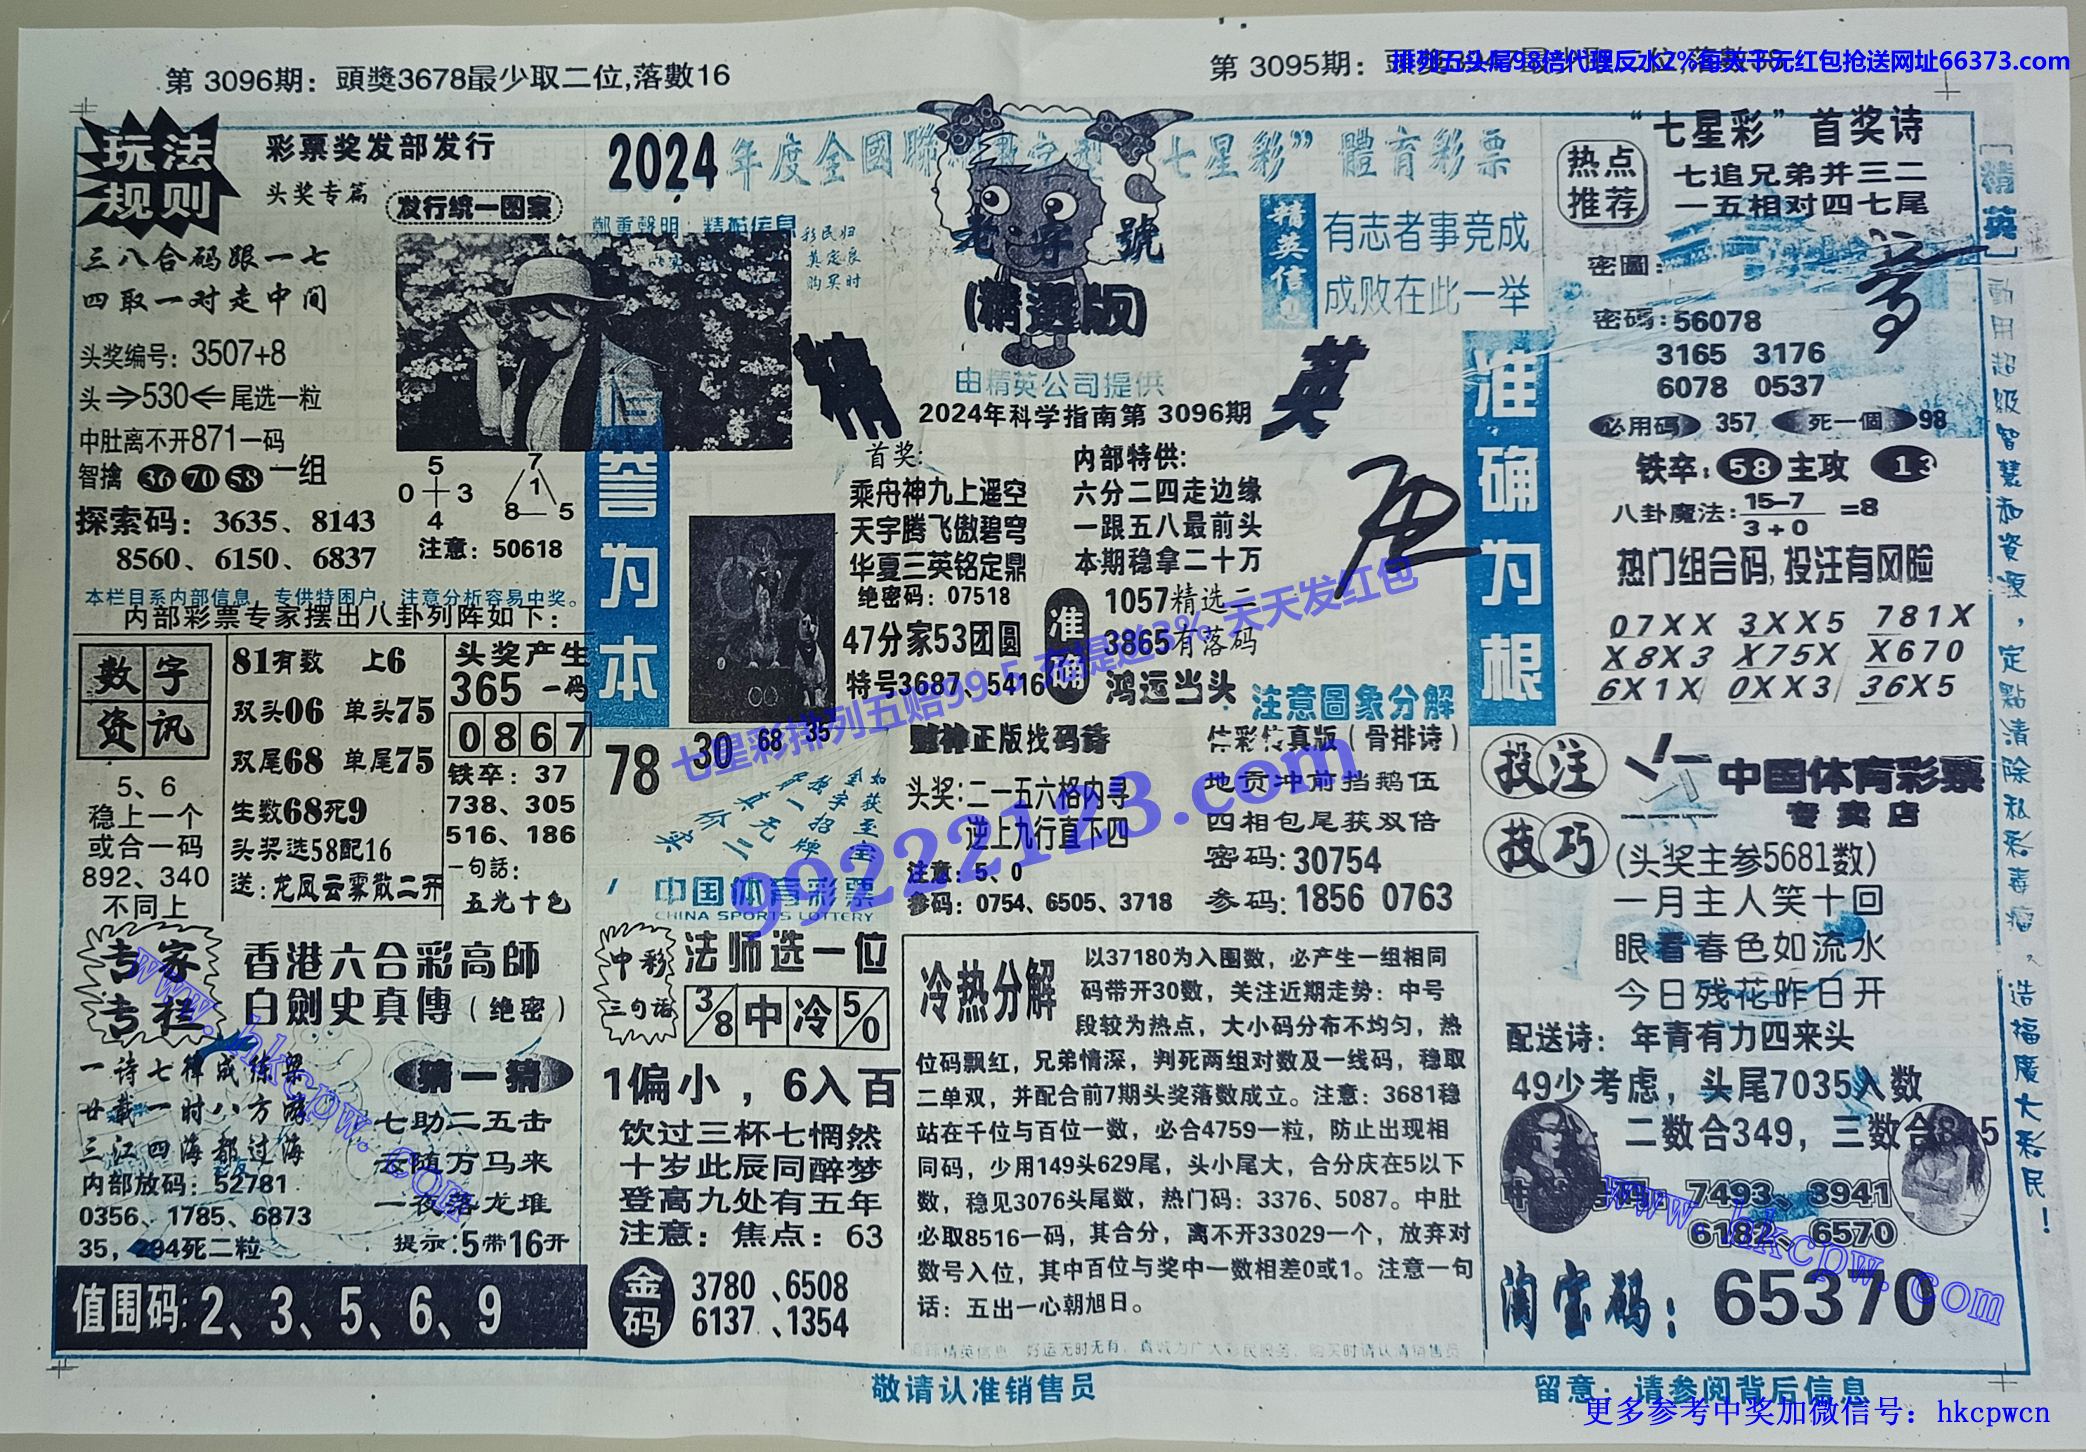 第 3096期：頭獎3678最少取二位,落數16
第 3095期：
排列五头尾98倍代理反水2%每天千元红包抢送网址66373.com
玩法
规则
彩票奖发部发行
头奖专篇
发行统一图案
三八合码跟一七
四取一对走中间
头奖编号：3507+8
头⇒530⇐尾选一粒
中肚离不开871一码
智擒 36 70 58 一组
探索码：3635、8143
8560、6150、6837
5
0 3
4
7
1
8 5
注意：50618
本栏目系内部信息，专供特困户，注意分析容易中奖。
内部彩票专家摆出八卦列阵如下：
数字
资讯
5、6
稳上一个
或合一码
892、340
不同上
81有数 上6
双头06 单头75
双尾68 单尾75
生数68死9
头奖选58配16
送:龙凤云雾散二开
头奖产生
365 一码
0867
铁卒：37
738、305
516、186
一句話：
五光十色
专家
专栏
香港六合彩高師
白劍史真傳（绝密）
一诗七律成栋梁
廿载一时八方游
三江四海都过海
内部放码：52781
0356、1785、6873
35，294死二粒
猜一猜
七助二五击
一夜落龙堆
提示:5带16开
值围码:2、3、5、6、9
2024年度全國聯 “七星彩”體育彩票
鄭重聲明：精英信息
移民归
莫定良
购买时
老字號
(精選版)
由精英公司提供
2024年科学指南第 3096期
精 英
精英信
有志者事竞成
成败在此一举
信誉为本
准确为根
首奖:
乘舟神九上遥空
天宇腾飞傲碧穹
华夏三英铭定鼎
绝密码：07518
47分家53团圆
特号3687、5416
内部特供:
六分二四走边缘
一跟五八最前头
本期稳拿二十万
准确
1057精选二
3865有落码
鸿运当头
注意圖象分解
78 30 68 35
如获至宝
中国体育彩票
CHINA SPORTS LOTTERY
赌神正版找码诗
头奖:二一五六格内寻
逆上九行直不四
注意:5、0
参码：0754、6505、3718
体彩传真版（骨排诗）
地贡冲前挡鹅伍
四相包尾获双倍
密码:30754
参码:1856 0763
中彩
三句话
法师选一位
3/8 中 冷 5/0
1偏小，6入百
饮过三杯七惘然
十岁此辰同醉梦
登高九处有五年
注意：焦点：63
金码
3780、6508
6137、1354
冷热分解
以37180为入围数，必产生一组相同
码带开30数，关注近期走势：中号
段较为热点，大小码分布不均匀，热
位码飘红，兄弟情深，判死两组对数及一线码，稳取
二单双，并配合前7期头奖落数成立。注意：3681稳
站在千位与百位一数，必合4759一粒，防止出现相
同码，少用149头629尾，头小尾大，合分庆在5以下
数，稳见3076头尾数，热门码：3376、5087。中肚
必取8516一码，其合分，离不开33029一个，放弃对
数号入位，其中百位与奖中一数相差0或1。注意一句
话：五出一心朝旭日。
追踪精英信息，好运无时无有，真诚为广大彩民服务，购买时请认清销售员
“七星彩”首奖诗
热点
推荐
七追兄弟并三二
一五相对四七尾
密圖:
密碼:56078
3165 3176
6078 0537
必用码 357 死一個 98
铁卒：58 主攻 13
八卦魔法: 15-7 / 3+0 =8
热门组合码,投注有风险
07XX 3XX5 781X
X8X3 X75X X670
6X1X 0XX3 36X5
投注
技巧
中国体育彩票
专卖店
(头奖主参5681数)
一月主人笑十回
眼看春色如流水
今日残花昨日开
配送诗：年青有力四来头
49少考虑，头尾7035入数
二数合349，三数合815
7493、3941
6182、6570
淘宝码：65370
[精英]動用超级智慧和資源，定點清除私彩毒瘤。造福廣大彩民！
敬请认准销售员
留意：请参阅背后信息
七星彩排列五赔99.5 充提送3% 天天发红包
99222123.com
www.hkcpw.com
www.hkcpw.com
更多参考中奖加微信号：hkcpwcn